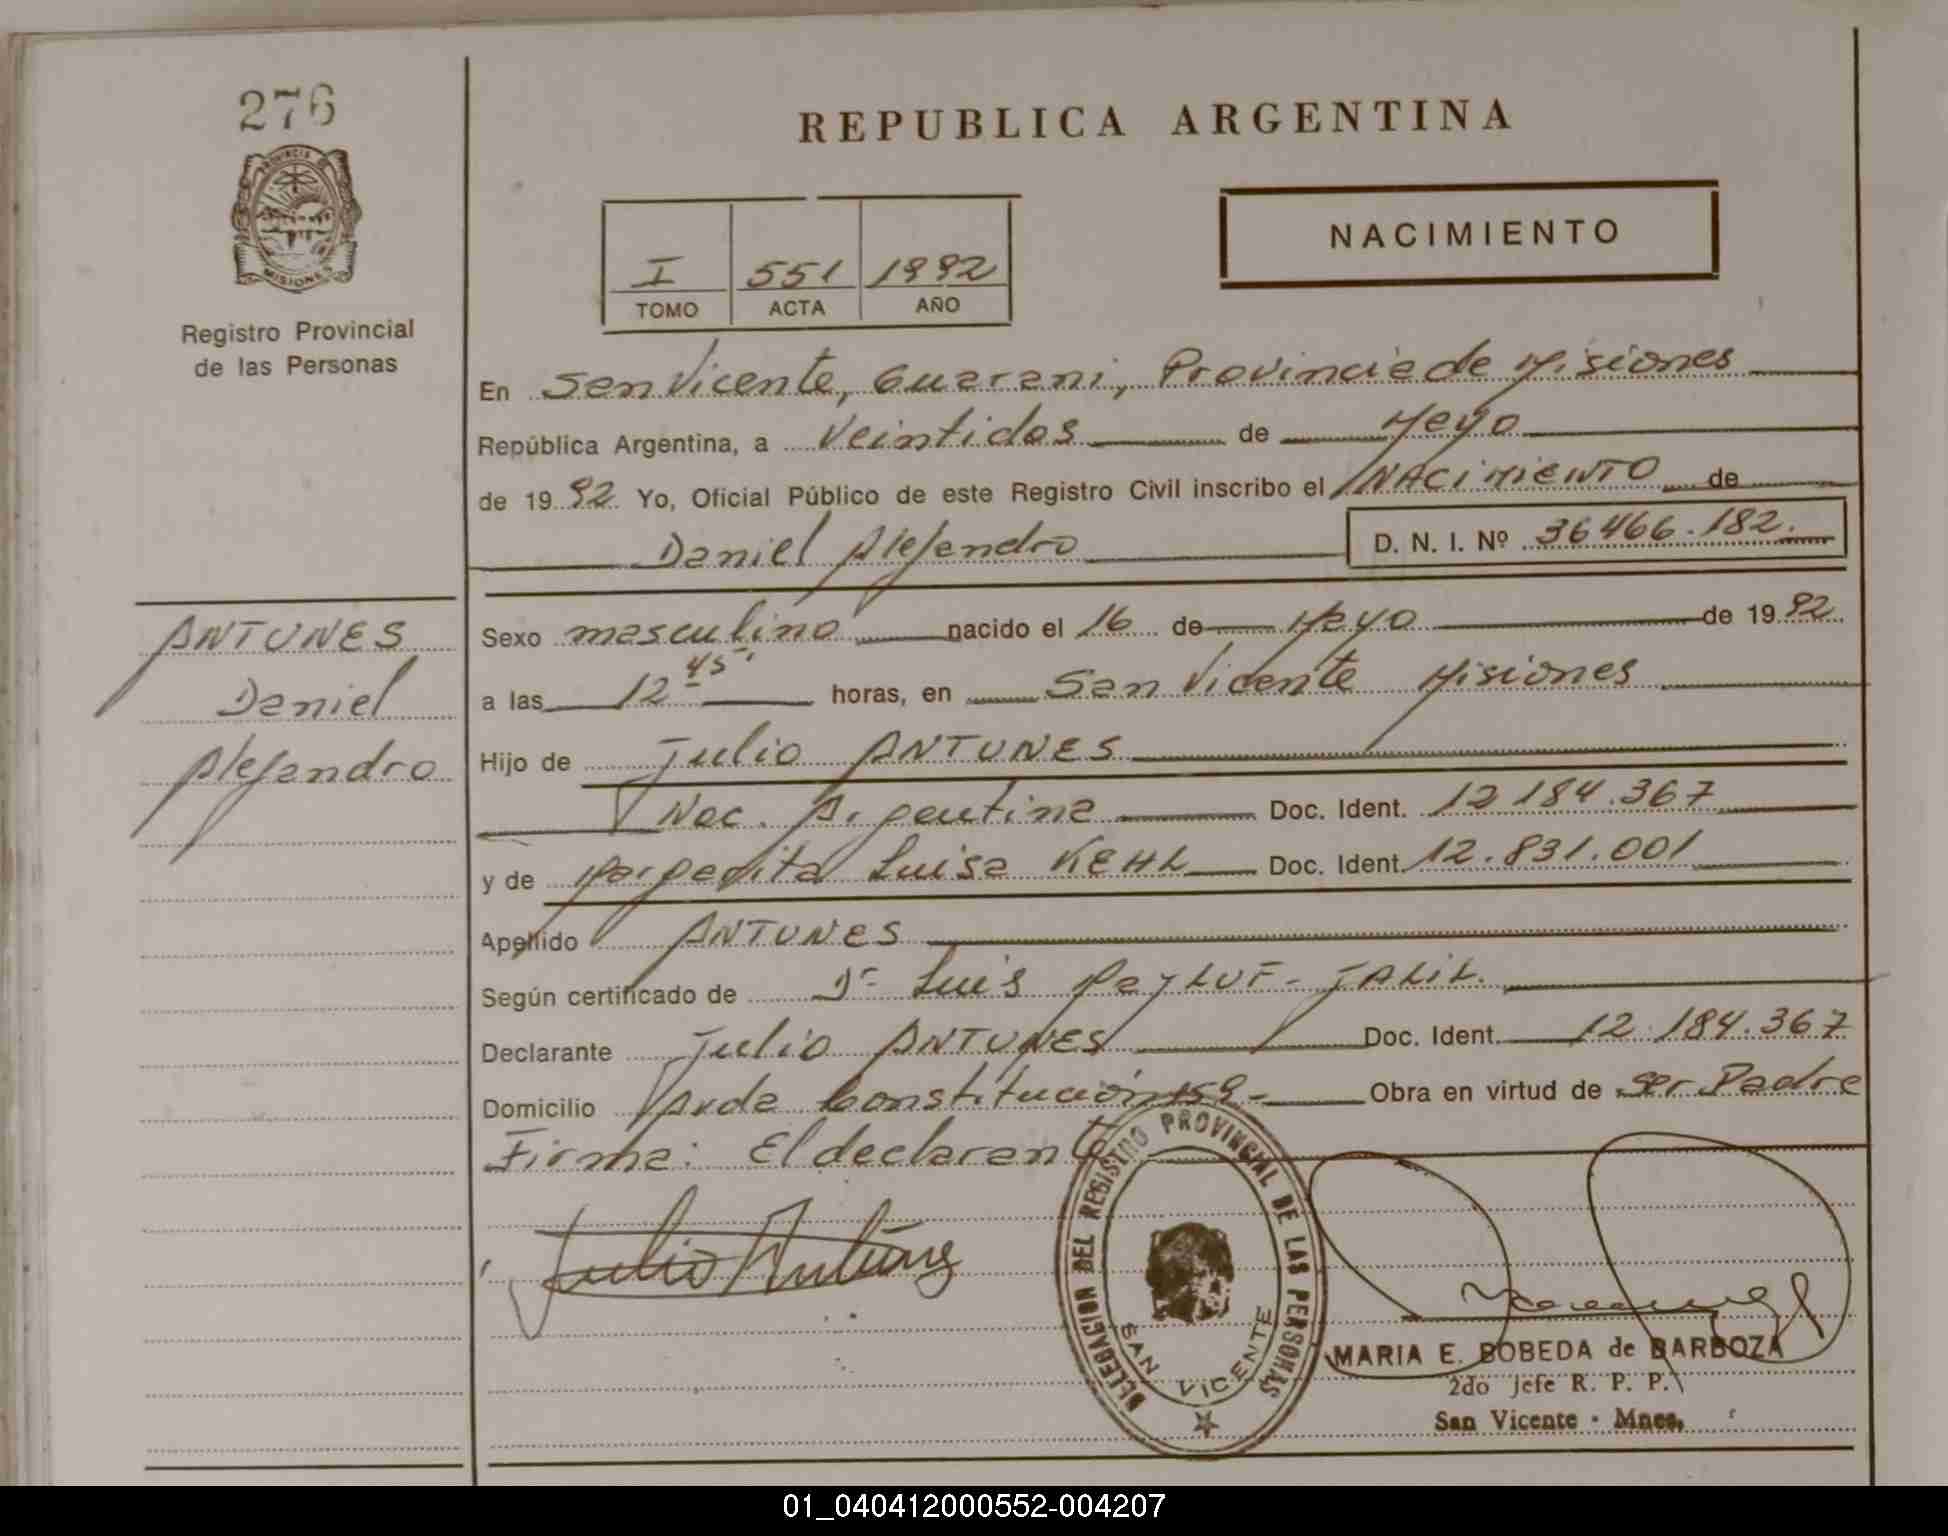 276
PROVINCIA DE
MISIONES
Registro Provincial
de las Personas
REPUBLICA ARGENTINA
NACIMIENTO
I 551 1992
TOMO ACTA AÑO
En San Vicente, Guarani, Provincia de Misiones
República Argentina, a Veintidos de Mayo
de 1992 Yo, Oficial Público de este Registro Civil inscribo el NACIMIENTO de
Daniel Alejandro D. N. I. Nº 36466.182.
ANTUNES
Daniel
Alejandro
Sexo masculino nacido el 16 de Mayo de 1992
a las 12 45' horas, en San Vicente Misiones
Hijo de Julio ANTUNES
Nac. Argentina Doc. Ident. 12 184.367
y de Margarita Luisa KEHL Doc. Ident. 12.831.001
Apellido ANTUNES
Según certificado de Dr Luis JALIL.
Declarante Julio ANTUNES Doc. Ident. 12.184.367
Domicilio Avda Constitución 159 - Obra en virtud de ser Padre
Firma: El declarante
Julio Antunes
DELEGACION DEL REGISTRO PROVINCIAL DE LAS PERSONAS
SAN VICENTE
MARIA E. BOBEDA de BARBOZA
2do Jefe R. P. P.
San Vicente - Mnes.
01_040412000552-004207